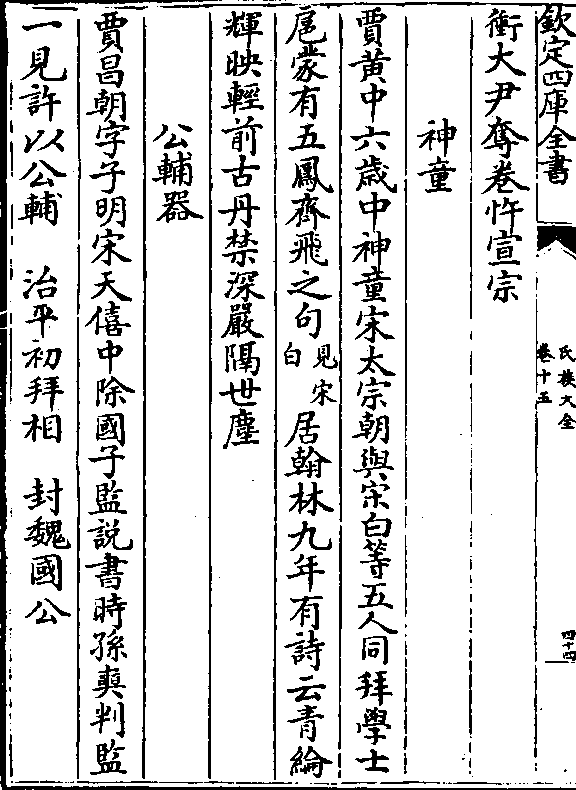 欽定四庫全書
氏族大全
卷十五
四十四
衝大尹奪卷忤宣宗
神童
賈黃中六歲中神童宋太宗朝與宋白等五人同拜學士
扈蒙有五鳳齊飛之句見宋白居翰林九年有詩云青綸
輝映輕前古丹禁深嚴隔世塵
公輔器
賈昌朝字子明宋天僖中除國子監説書時孫奭判監
一見許以公輔　治平初拜相　封魏國公